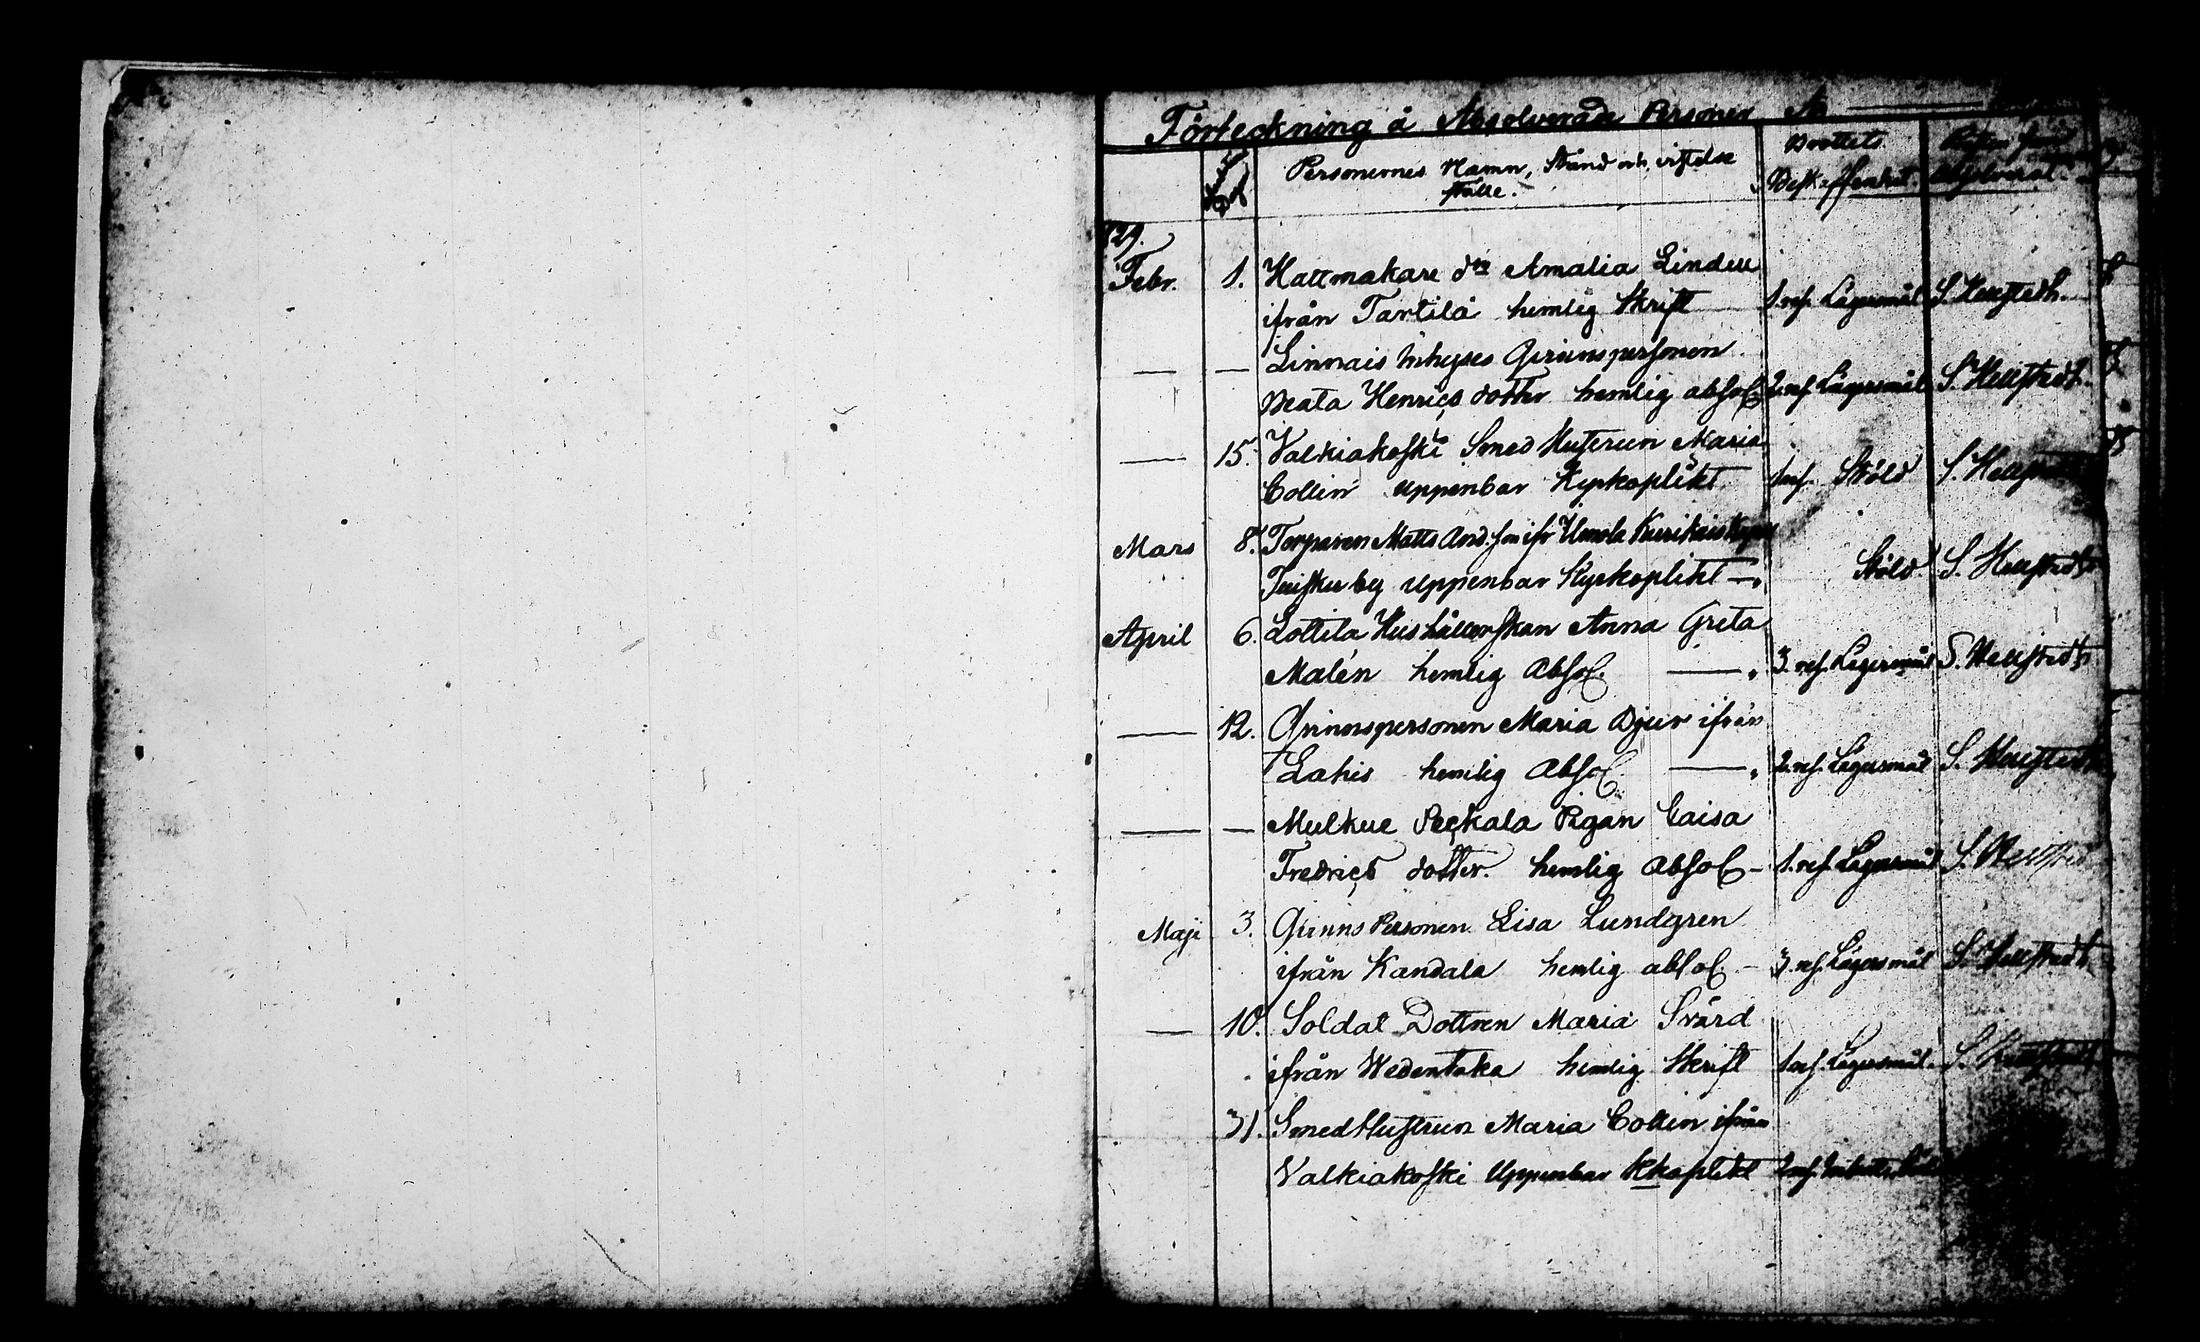 Förteckning å Absolverade Personer
Personernes Namn, Stånd och vistelse
ställe.
Brottets
Beskaffenhet.
Absolverat.
829.
Febr. 1. Hattmakare dtr Amalia Lindell
ifrån Tarttila hemlig Skrift 1. res. Lägersmål S. Hellstedt.
— — Linnais Inhyses Qvinnspersonen
Beata Henrics dotter hemlig absol. 2. res. Lägersmål S. Hellstedt.
— 15. Valkiakoski Smed Hustrun Maria
Collin uppenbar Kyrkoplikt 1 res. Stöld S.
Mars 8. Torparen Matts And. son ifr
uppenbar Kyrkoplikt — Stöld S. Hellstedt
April 6. Lottila Hushållerskan Anna Greta
Malén hemlig Absol. — 3. res. Lägersmål S. Hellstedt
— 12. Qvinnspersonen Maria Djur ifrån
Lahis hemlig Absol. — 2. res. Lägersmål S. Hellstedt
— — Mulkue Peckala Pigan Caisa
Fredrics dotter. hemlig Absol — 1. res. Lägersmål S. Hellsted
Maji 3. Qvinns Personen Lisa Lundgren
ifrån Kandala hemlig absol. — 3. res. Lägersmål S. Hellstedt
— 10. Soldat Dottren Maria Svärd
ifrån Wedentaka hemlig Skrift 1 res. Lägersmål. S.
31. Smed Hustrun Maria Collin ifrån
Valkiakoski Uppenbar Kkoplikt 2 res.